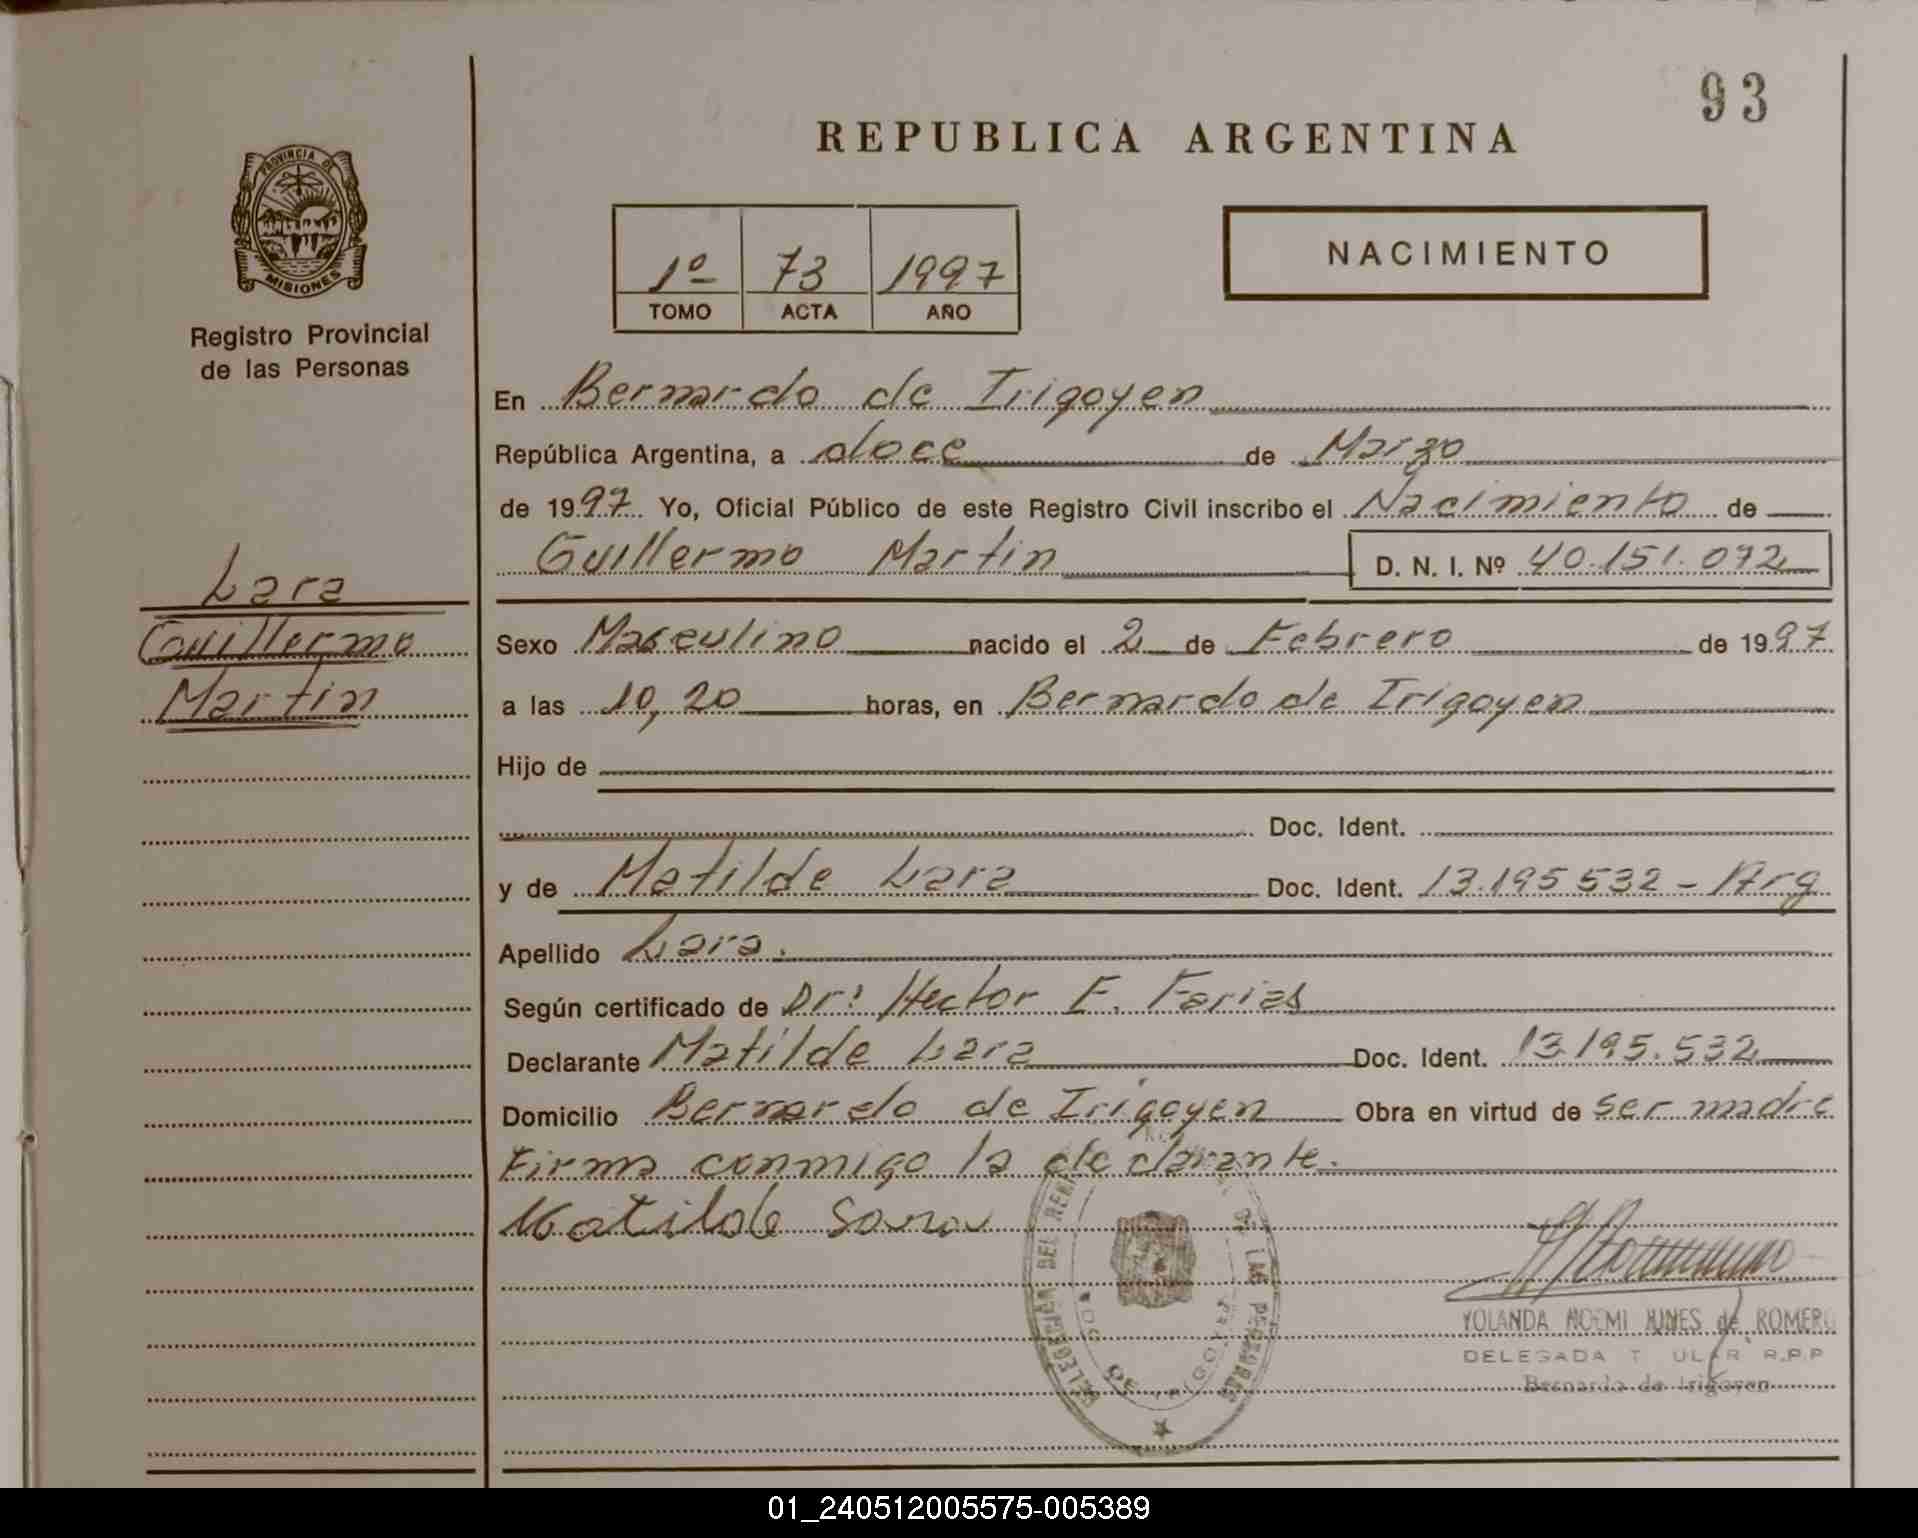 93
REPUBLICA ARGENTINA
PROVINCIA DE
MISIONES
Registro Provincial
de las Personas
1º 73 1997
TOMO ACTA AÑO
NACIMIENTO
En Bernardo de Irigoyen
República Argentina, a doce de Marzo
de 1997 Yo, Oficial Público de este Registro Civil inscribo el Nacimiento de
Guillermo Martin D. N. I. Nº 40.151.072
Lara
Guillermo
Martin
Sexo Masculino nacido el 2 de Febrero de 1997
a las 10,20 horas, en Bernardo de Irigoyen
Hijo de
Doc. Ident.
y de Matilde Lara Doc. Ident. 13.195 532 - Arg
Apellido Lara.
Según certificado de Dr: Hector E. Farias
Declarante Matilde Lara Doc. Ident. 13.195.532
Domicilio Bernardo de Irigoyen Obra en virtud de ser madre
Firma conmigo la declarante.
Matilde
DE LAS PERSONAS
DE IRIGOYEN
YOLANDA NOEMI de ROMERO
DELEGADA TITULAR R.P.P
Bernardo de Irigoyen
01_240512005575-005389